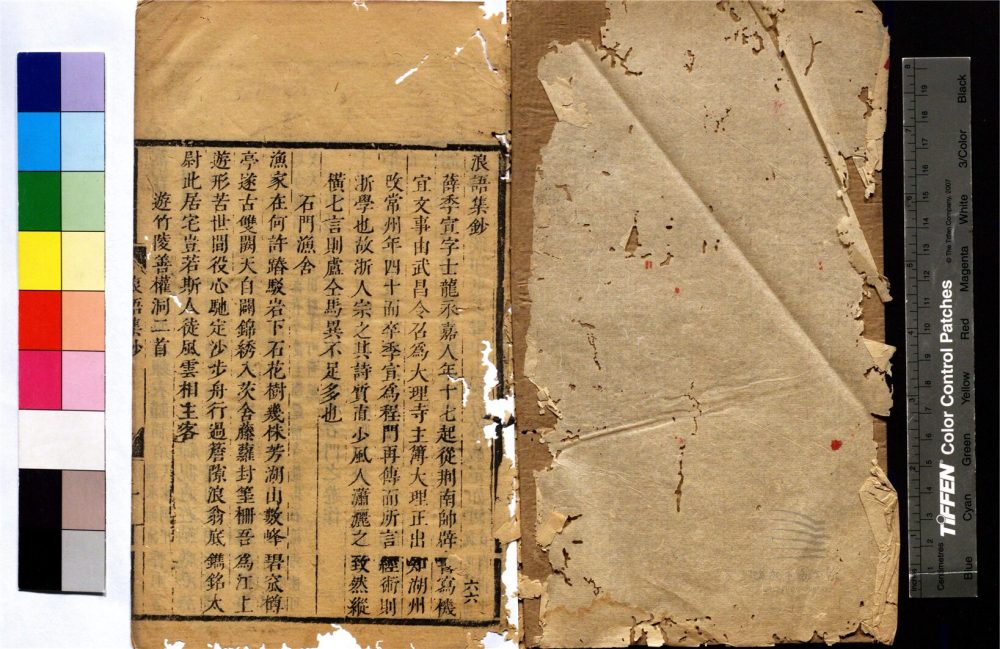 浪語集鈔
薛季宣字士龍永嘉人年十七起從荆南帥辟書寫機
宜文事由武昌令召爲大理寺主簿大理正出知湖州
改常州年四十而卒季宣爲程門再傳而所言經術則
浙學也故浙人宗之其詩質直少風人瀟灑之致然縱
橫七言則盧仝馬異不足多也
石門漁舍
漁家在何許蹖駁岩下石花樹幾株芳湖山數峰碧窊樽
亭遂古雙闕天自闢錦綉入茨舍藤蘿封篳柵吾爲江上
遊形苦世間役心馳定沙步舟行過簷隙浪翁底鐫銘太
尉此居宅豈若斯人徒風雲相主客
遊竹陵善權洞二首
浪語集鈔
六六
TIFFEN Color Control Patches
© The Tiffen Company, 2007
Centimetres
Inches
Blue
Cyan
Green
Yellow
Red
Magenta
White
3/Color
Black